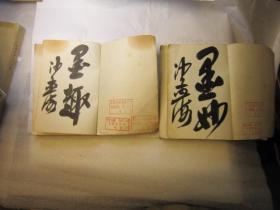 墨趣
沙孟海
墨妙
沙孟海